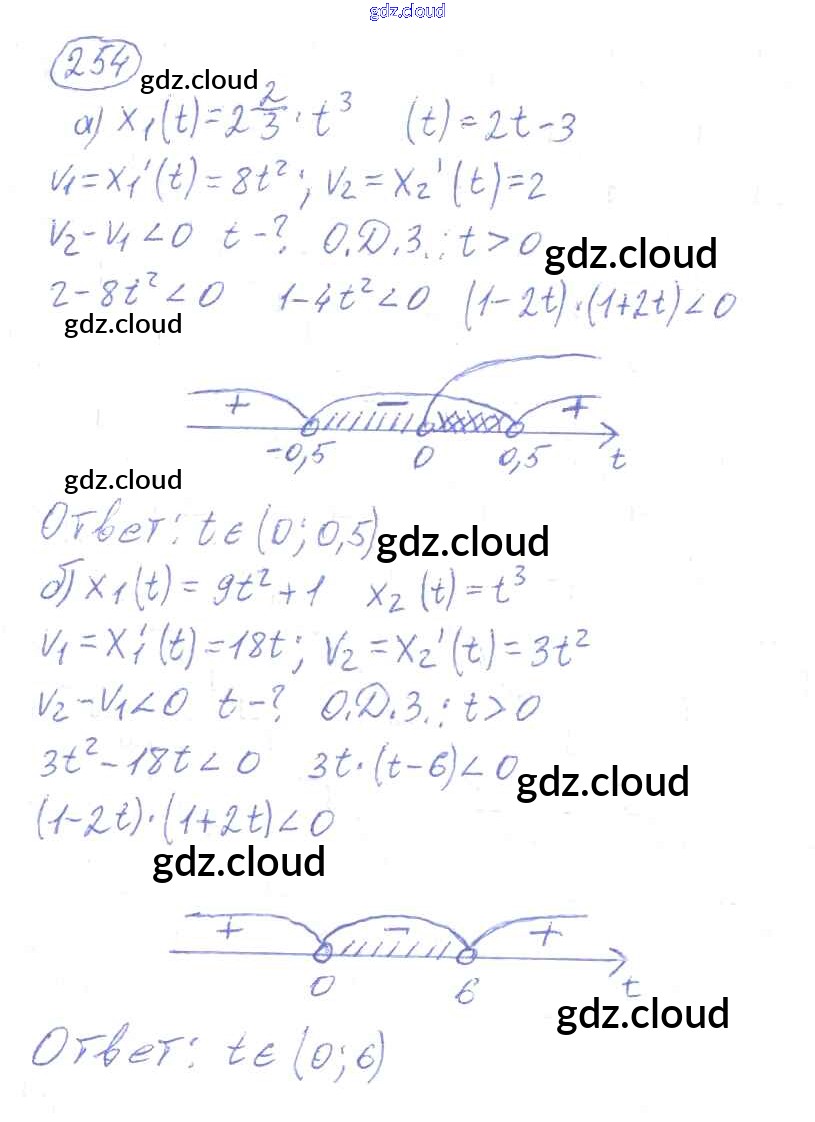 gdz.cloud
254
gdz.cloud
а) x₁(t)=2 2/3 · t³ (t)=2t-3
v₁=x₁'(t)=8t²; v₂=x₂'(t)=2
v₂-v₁<0 t-? О.Д.З.: t>0
gdz.cloud
2-8t²<0 1-4t²<0 (1-2t)·(1+2t)<0
gdz.cloud
+ - +
-0,5 0 0,5 t
gdz.cloud
Ответ: t∈(0; 0,5)
gdz.cloud
б) x₁(t)=9t²+1 x₂(t)=t³
v₁=x₁'(t)=18t; v₂=x₂'(t)=3t²
v₂-v₁<0 t-? О.Д.З.: t>0
3t²-18t<0 3t·(t-6)<0
gdz.cloud
(1-2t)·(1+2t)<0
gdz.cloud
+ - +
0 6 t
gdz.cloud
Ответ: t∈(0;6)